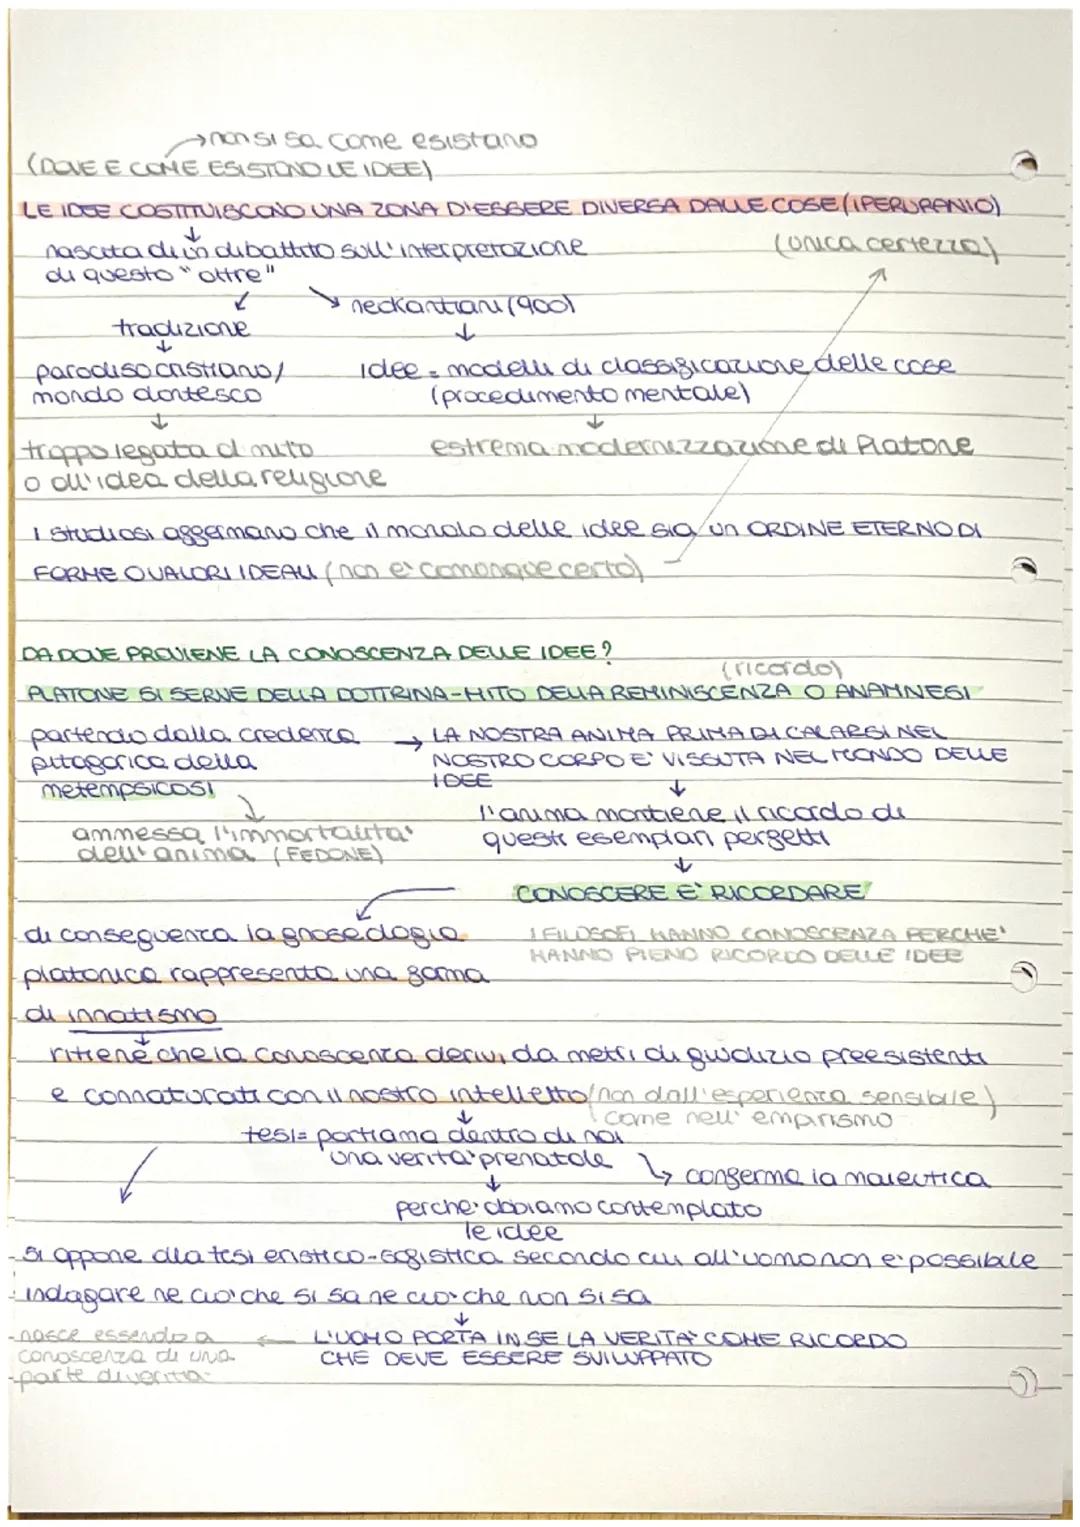 →non si sa come esistano
(DOVE E COME ESISTONO LE IDEE)
LE IDEE COSTITUISCONO UNA ZONA D'ESSERE DIVERSA DALLE COSE (IPERURANIO)
↓
nascita di un dibattito sull'interpretazione (unica certezza)
di questo "oltre"
↙ ↘ neokantiani (900)
tradizione ↓
↓
paradiso cristiano/ idee = modelli di classificazione delle cose
mondo dantesco (procedimento mentale)
↓ ↓
troppo legata al mito estrema modernizzazione di Platone
o all'idea della religione
I studiosi affermano che il mondo delle idee sia un ORDINE ETERNO DI
FORME O VALORI IDEALI (non e' comonque certo)
DA DOVE PROVIENE LA CONOSCENZA DELLE IDEE?
(ricordo)
PLATONE SI SERVE DELLA DOTTRINA-MITO DELLA REMINISCENZA O ANAMNESI
partendo dalla credenza → LA NOSTRA ANIMA PRIMA DI CALARSI NEL
pitagorica della NOSTRO CORPO E' VISSUTA NEL MONDO DELLE
metempsicosi IDEE
↘ ↓
l'anima mantiene il ricordo di
ammessa l'immortalita' questi esemplari perfetti
dell'anima (FEDONE) ↓
CONOSCERE E' RICORDARE
di conseguenza la gnoseologia I FILOSOFI HANNO CONOSCENZA PERCHE'
platonica rappresenta una forma HANNO PIENO RICORDO DELLE IDEE
di innatismo
↓
ritiene che la conoscenza derivi da metri di giudizio preesistenti
e connaturati con il nostro intelletto (non dall'esperienza sensibile)
↓ come nell'empirismo
tesi= portiamo dentro di noi
una verita' prenatale ↳ conferma la maieutica
↓
perche' abbiamo contemplato
le idee
si oppone alla tesi eristico-sofistica secondo cui all'uomo non e' possibile
indagare ne cio' che si sa ne cio' che non si sa
↓
nasce essendo a ← L'UOMO PORTA IN SE LA VERITA' COME RICORDO
conoscenza di una CHE DEVE ESSERE SVILUPPATO
parte di verita'